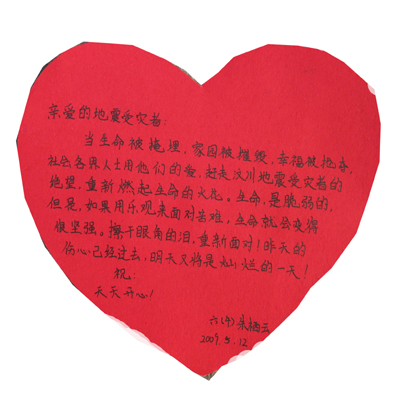 亲爱的地震受灾者:
当生命被掩埋,家园被摧毁,幸福被抢夺,
社会各界人士用他们的爱,赶走汶川地震受灾者的
绝望,重新燃起生命的火花。生命,是脆弱的,
但是,如果用乐观来面对苦难,生命就会变得
很坚强。擦干眼角的泪,重新面对!昨天的
伤心已经过去,明天又将是灿烂的一天!
祝:
天天开心!
六(4)
2009.5.12